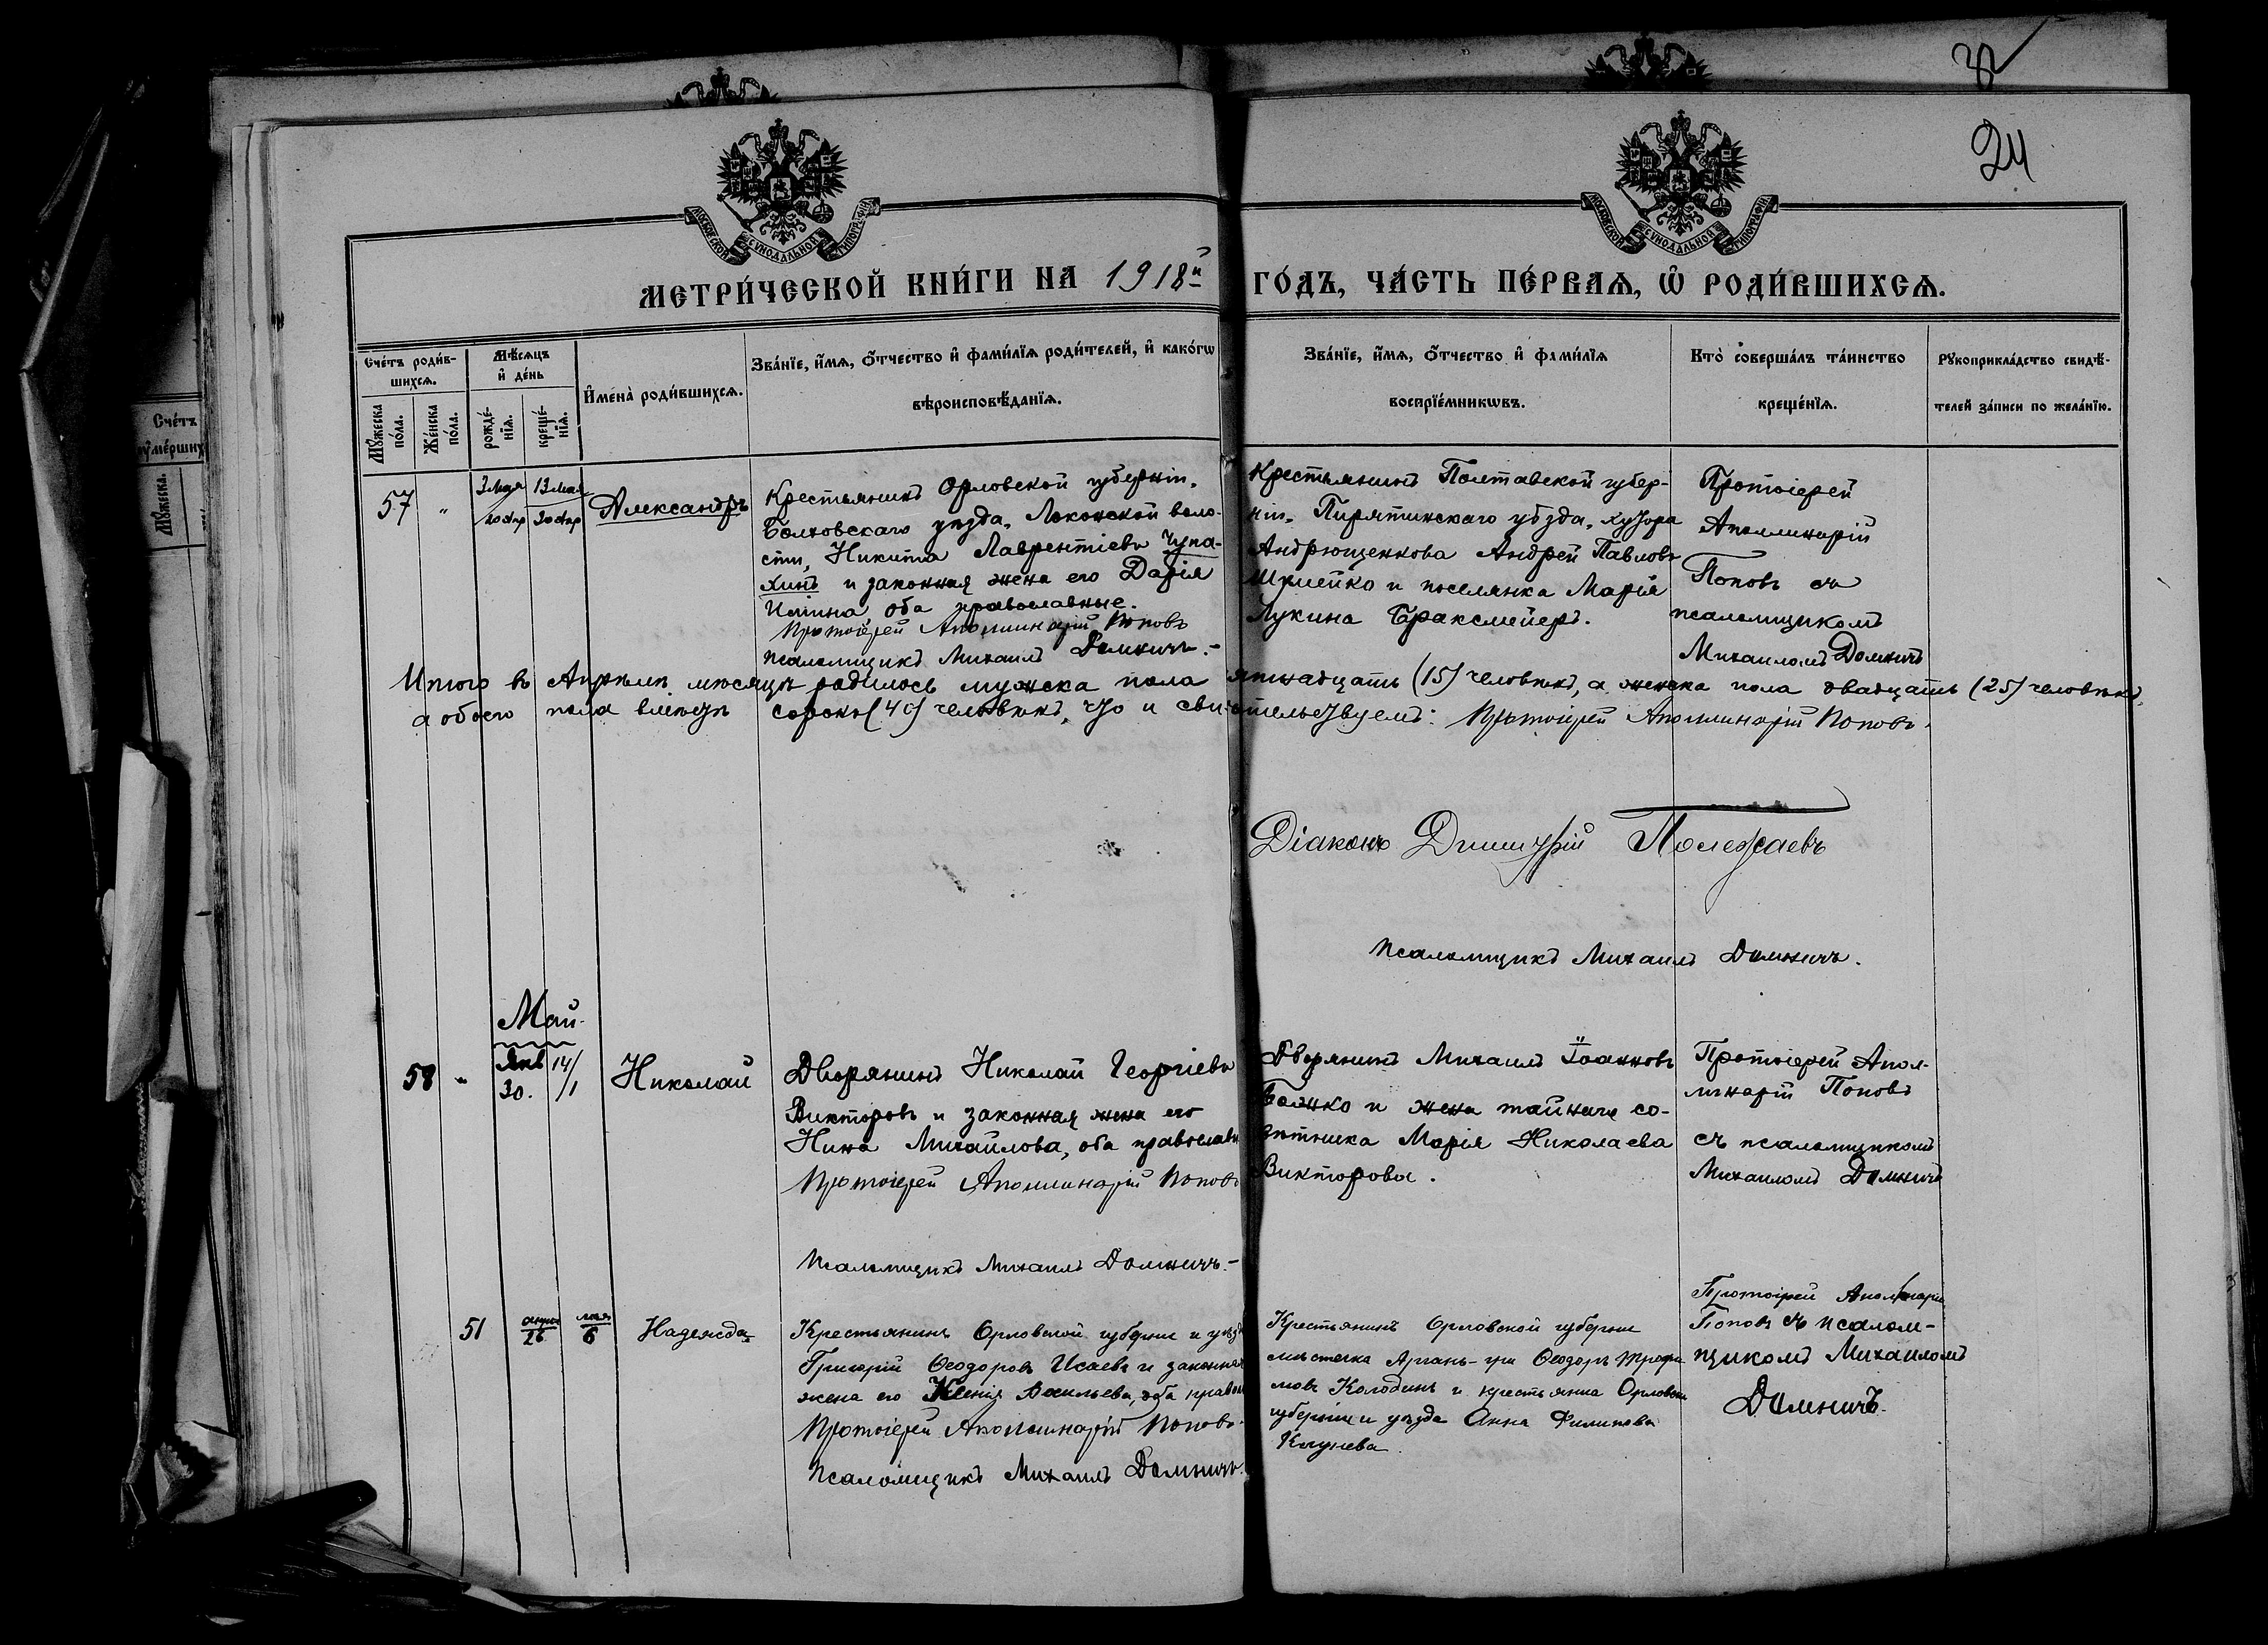 32
24
МОСКОВСКОЙ СѴНОДАЛЬНОЙ ТИПОГРАФІИ
МОСКОВСКОЙ СѴНОДАЛЬНОЙ ТИПОГРАФІИ
МЕТРИ́ЧЕСКОЙ КНИ́ГИ НА 1918й ГО́ДЪ, ЧА́СТЬ ПЕ́РВАѦ, Ѡ҆ РОДИ́ВШИХСѦ.
Сче́тъ роди́в-
шихсѧ.
Мꙋ́жеска
по́ла.
Же́нска
по́ла.
Мѣ́сѧцъ
и҆ де́нь
рожде́-
нїѧ.
креще́-
нїѧ.
И҆мена̀ роди́вшихсѧ.
Зва́нїе, и҆́мѧ, ѻ҆́тчество и҆ фами́лїѧ роди́телей, и҆ како́гѡ
вѣроисповѣ́данїѧ.
Зва́нїе, и҆́мѧ, ѻ҆́тчество и҆ фами́лїѧ
воспрїе́мникѡвъ.
Кто̀ соверша́лъ та́инство
креще́нїѧ.
Рꙋкоприкла́дство свидѣ́-
телей за́писи по жела́нїю.
Сче́тъ
ᲂу҆ме́рших
Мꙋ́жеска.
57 " 3 Мая 13 Мая
20 апр 30 апр
Александръ
Крестьянинъ Орловской губерніи,
Болховскаго уѣзда, Локонской воло-
сти, Никита Лаврентіевъ Чупа-
хинъ и законная жена его Дарія
Ильина оба православные.
Протоіерей Аполлинарій Поповъ
Псаломщикъ Михаилъ Домничъ.-
Крестьянинъ Полтавской губер-
ніи, Пирятинскаго уѣзда, хутора
Андрющенкова Андрей Павловъ
и поселянка Марія
Лукина Браксмейеръ.
Протоіерей
Аполлинарій
Поповъ съ
псаломщикомъ
Михаиломъ Домничъ
Итого въ Апрѣлѣ мѣсяцѣ родилось мужска пола пятнадцать (15) человѣкъ, а женска пола двадцать (25) человѣкъ,
а обоего пола вмѣстѣ сорокъ (40) человѣкъ, что и свидѣтельствуемъ: Протоіерей Аполлинарій Поповъ.
Діаконъ Димитрій Полежаевъ
Псаломщикъ Михаилъ Домничъ.
Май.
58 " Янв 14/
30. /1
Николай
Дворянинъ Николай Георгіевъ
Викторовъ и законная жена его
Нина Михайлова, оба православн
Протоіерей Аполлинарій Поповъ
Псаломщикъ Михаилъ Домничъ.-
Дворянинъ Михаилъ Іоанновъ
Божко и жена тайнаго со-
вѣтника Марія Николаева
Викторова.
Протоіерей Апол-
линарій Поповъ
съ псаломщикомъ
Михаиломъ Домничъ
51 апрѣл мая
26 6
Надежда
Крестьянинъ Орловской губерніи и уѣзда
Григорій Ѳеодоровъ Исаевъ и законная
жена его Ксенія Васильева, оба правосл
Протоіерей Аполлинарій Поповъ
Псаломщикъ Михаилъ Домничъ.
Крестьянинъ Орловской губерніи
мѣстечка Ѳеодоръ Трофи
мовъ Колодинъ и крестьянка Орловской
губерніи и уѣзда Анна Филипова
Протоіерей Аполлинарій
Поповъ съ псалом-
щикомъ Михаиломъ
Домничъ.